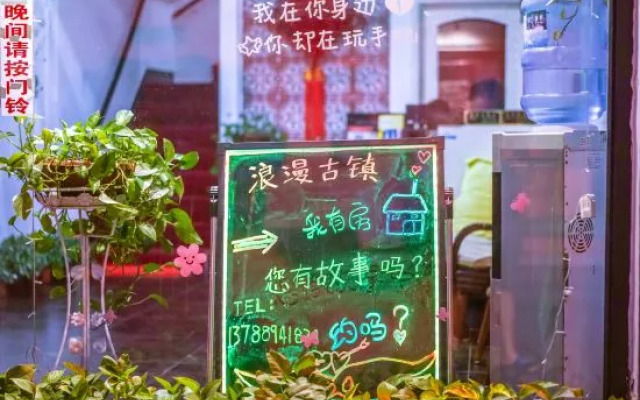 晚间请按门铃
我在你身边
你却在玩手
浪漫古镇
我有房
您有故事吗?
TEL:
约吗?